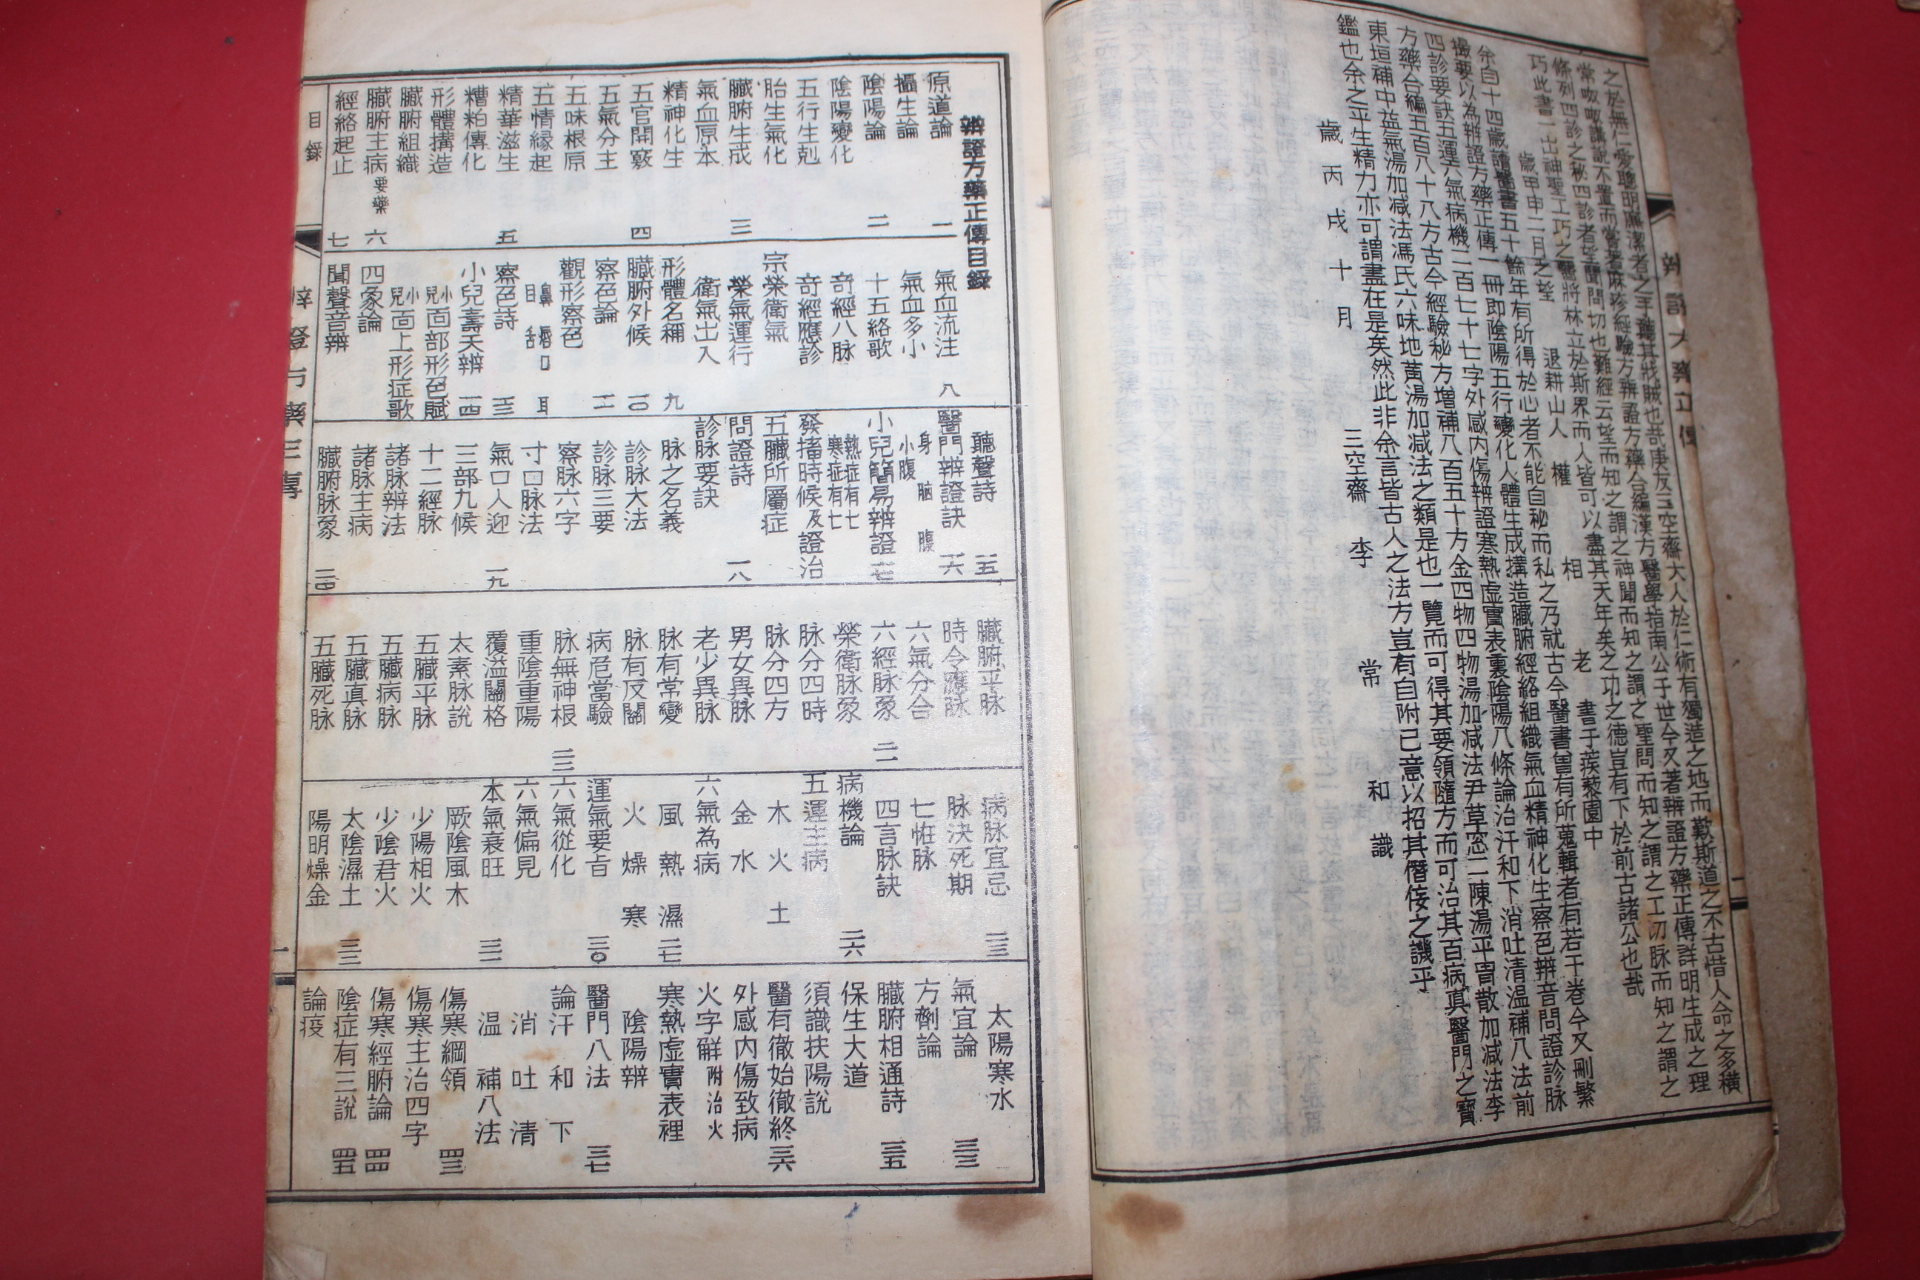 之於無仁愛聰明廉潔者之手譏其戕賊也哉庚友三空齋大人於仁術有獨造之地而歎斯道之不古惜人命之多橫
常呶呶講說不置而嘗著麻疹經驗方辨證方藥合編漢方醫學指南公于世今又著辨證方藥正傳詳明生成之理
條列四診之秘四診者望聞問切也難經云望而知之謂之神聞而知之謂之聖問而知之謂之工切脉而知之謂之
巧此書一出神聖工巧之醫將林立於斯界而人皆可以盡其天年矣之功之德豈有下於前古諸公也哉
歲甲申二月之望 退耕山人 權 相 老 書于蒺藜園中
余自十四歲讀醫書五十餘年有所得於心者不能自秘而私之乃就古今醫書曾有所蒐輯者有若干卷今又刪繁
撮要以為辨證方藥正傳一冊即陰陽五行變化人體生成搆造臟腑經絡組織氣血精神化生察色辨音問證診脉
四診要訣五運六氣病機二百七十七字外感內傷辨證寒熱虛實表裏陰陽八條論治汗和下消吐清温補八法前
方藥合編五百八十八方古今經驗秘方增補八百五十方金四物四物湯加減法尹草窓二陳湯平胃散加減法李
東垣補中益氣湯加減法馮氏六味地黃湯加減法之類是也一覽而可得其要領隨方而可治其百病真醫門之寶
鑑也余之平生精力亦可謂盡在是矣然此非余言皆古人之法方豈有自附己意以招其僭侫之譏乎
歲丙戌十月 三空齋 李 常 和 識
辨證方藥正傳目錄
原道論 一
攝生論
陰陽論 二
陰陽變化
五行生剋
胎生氣化
臟腑生成 三
氣血原本
精神化生
五官開竅 四
五氣分主
五味根原
五情緣起
精華滋生 五
糟粕傳化
形體搆造
臟腑組織
臟腑主病要藥 六
經絡起止 七
氣血流注 八
氣血多小
十五絡歌
奇經八脉
奇經應診
宗榮衛氣
榮氣運行
衛氣出入
形體名稱 九
臟腑外候 一〇
察色論 一一
觀形察色
鼻 唇口 耳
目 舌
察色詩 一三
小兒壽夭辨 一四
小兒面部形色賦
小兒面上形症歌
四象論
聞聲音辨
聽聲詩 一五
醫門辨證訣 一六
身 腦 腹
小腹
小兒簡易辨證 一七
熱症有七
寒症有七
發搐時候及證治
五臟所屬症
問證詩 一八
診脉要訣
脉之名義
診脉大法
診脉三要
察脉六字
寸口脉法
氣口人迎 一九
三部九候
十二經脉
諸脉辨法
諸脉主病
臟腑脉象 二〇
臟腑平脉
時令應脉
六氣分合
六經脉象 二一
榮衛脉象
脉分四時
脉分四方
男女異脉
老少異脉
脉有常變
脉有反關
病危當驗
脉無神根 二二
重陰重陽
覆溢關格
太素脉說
五臟平脉
五臟病脉
五臟真脉
五臟死脉
病脉宜忌 二三
脉決死期
七恠脉
四言脉訣
病機論 二六
五運主病
木 火 土
金 水
六氣為病
風 熱 濕 二七
火 燥 寒
運氣要旨 三〇
六氣從化
六氣偏見
本氣衰旺 三一
厥陰風木
少陽相火
少陰君火
太陰濕土 三二
陽明燥金
太陽寒水
氣宜論 三三
方劑論
臟腑相通詩 三五
保生大道
須識扶陽說
醫有徹始徹終 三六
外感內傷致病
火字解附治火
寒熱虛實表裡
陰陽辨
醫門八法 三七
論汗 和 下
消 吐 清
温 補八法
傷寒綱領 四三
傷寒主治四字
傷寒經腑論 四四
陰症有三說 四五
論疫
目錄
辨證方藥正傳
一